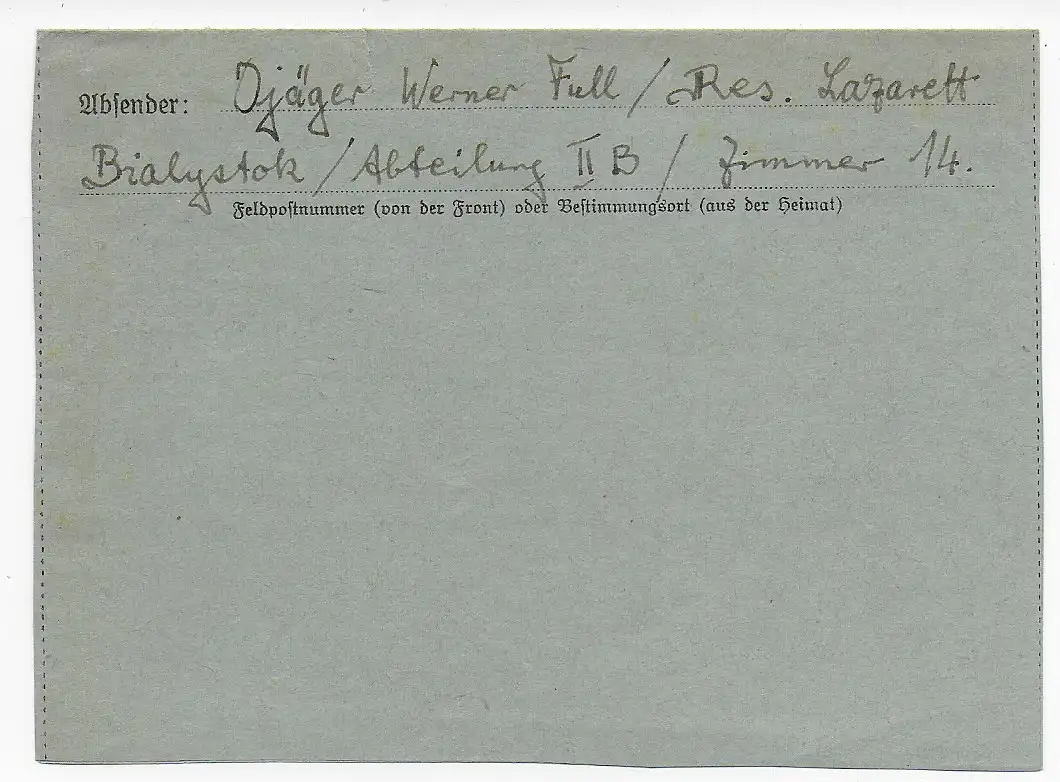 Absender: Ojäger Werner Full / Res. Lazarett
Bialystok / Abteilung II B / Zimmer 14.
Feldpostnummer (von der Front) oder Bestimmungsort (aus der Heimat)